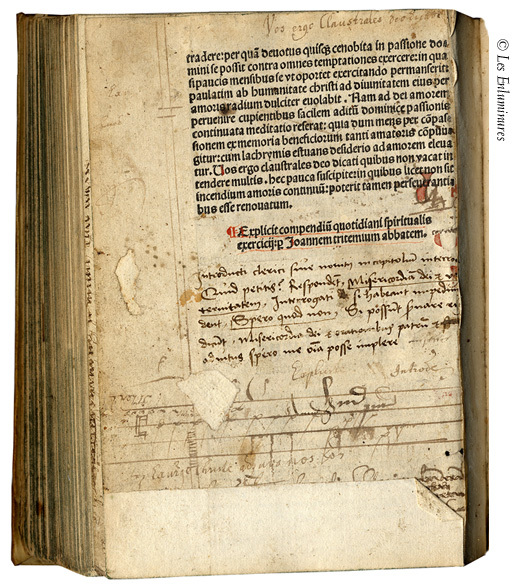 Vos ergo Claustrales
tradere: per quã deuotus quisqȝ cenobita in passione do⸗
mini se possit contra omnes temptationes exercere: in qua
si paucis mensibus se vt oportet exercitando permanserit
paulatim ab humanitate christi ad diuinitatem eius per
amoris radium dulciter euolabit. Nam ad dei amorem
peruenire cupientibus facilem aditũ dominice passionis
continuata meditatio reserat: quia dum mens per cõpas⸗
sionem ex memoria beneficiorum tanti amatoris cõpũn
gitur: cum lachrymis estuans desiderio ad amorem eleua
tur. Uos ergo claustrales deo dicati quibus non vacat in
tendere multis. hec pauca suscipite: in quibus licet non sit
incendium amoris continuũ: poterit tamen perseuerantia
bus esse renouatum.
¶ Explicit compendiũ quotidiani spiritualis
exercicij: ꝑ Joannem tritemium abbatem.
Introducti clerici siue nouitij in capitulum interro
Quid petitis? Respondent, Misericordia dei &
ternitatem, Interrogati si habeant impedim
dent, Spero quod non, Si possunt
dicunt, Misericordia dei & orationibus patrum &
adiutus spero me oĩa posse implere
Explicit
© Les Enluminures